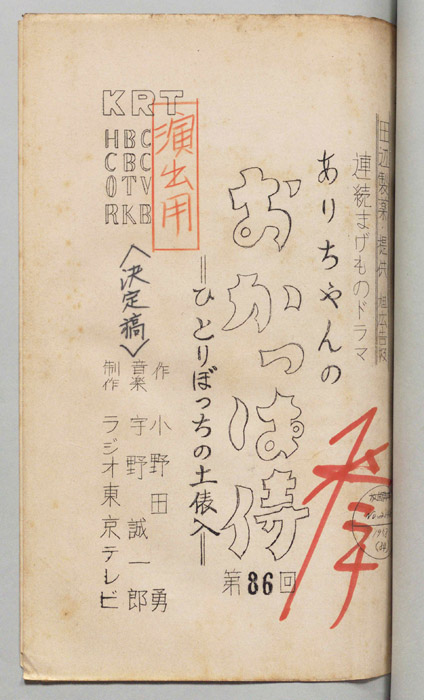 田辺製薬・提供
連続まげものドラマ
ありちゃんの
おかっぱ侍
第86回
=ひとりぼっちの土俵入=
演出用
KRT
HBC
CBC
OTV
RKB
〈決定稿〉
作 小野田 勇
音楽 宇野誠一郎
制作 ラジオ東京テレビ